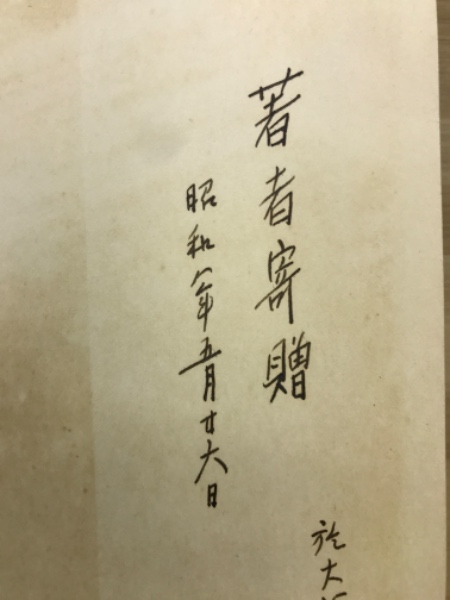 著者寄贈
昭和八年五月廿六日
於大